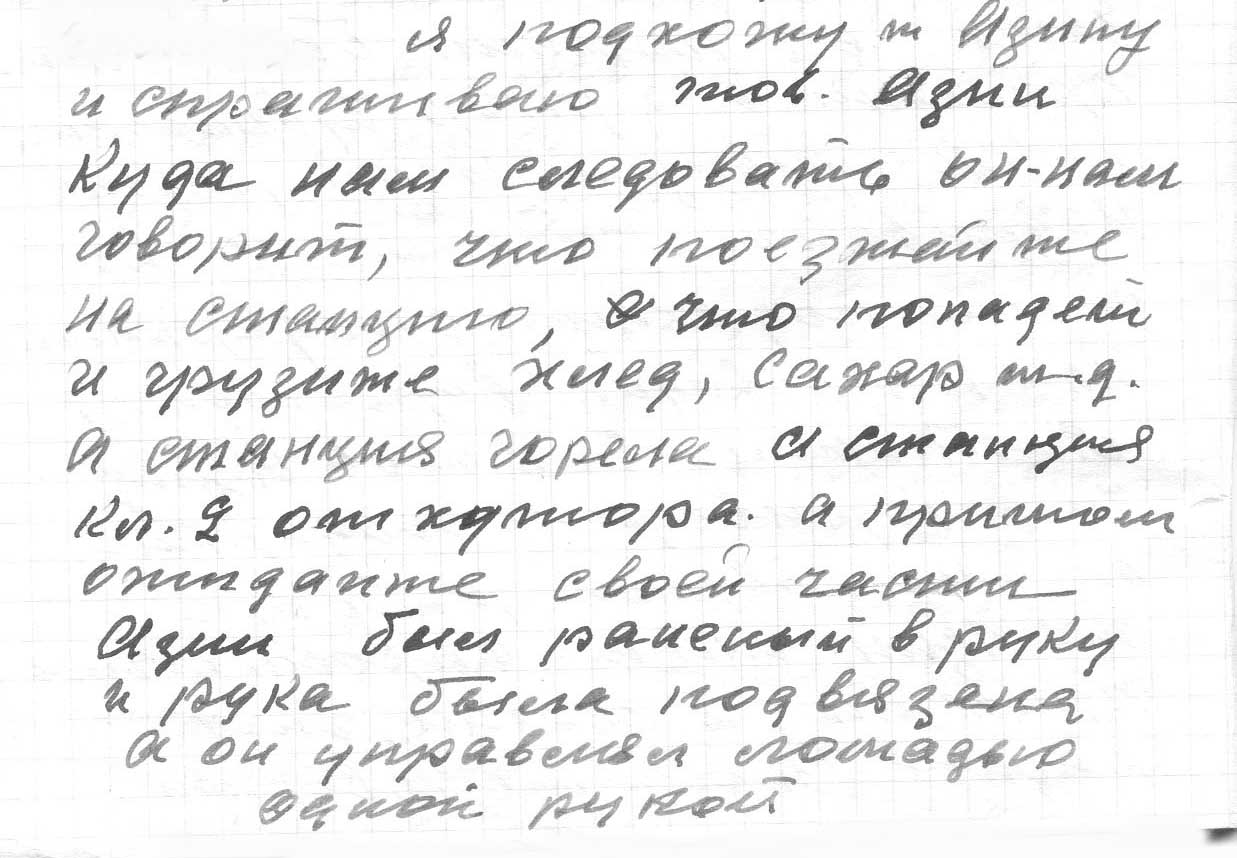 я подхожу т Азину
и спрашиваю тов. Азин
Куда нам следовать он-нам
говорит, что поезжайте
на станцию, а что попадет
и грузите хлед, Сахар т.д.
а станция горела а станция
Кл. 2 от хутора. а притом
ожидайте своей части
Азин был раненый в руку
и рука была подвязена
а он управлял лошадью
одной рукой